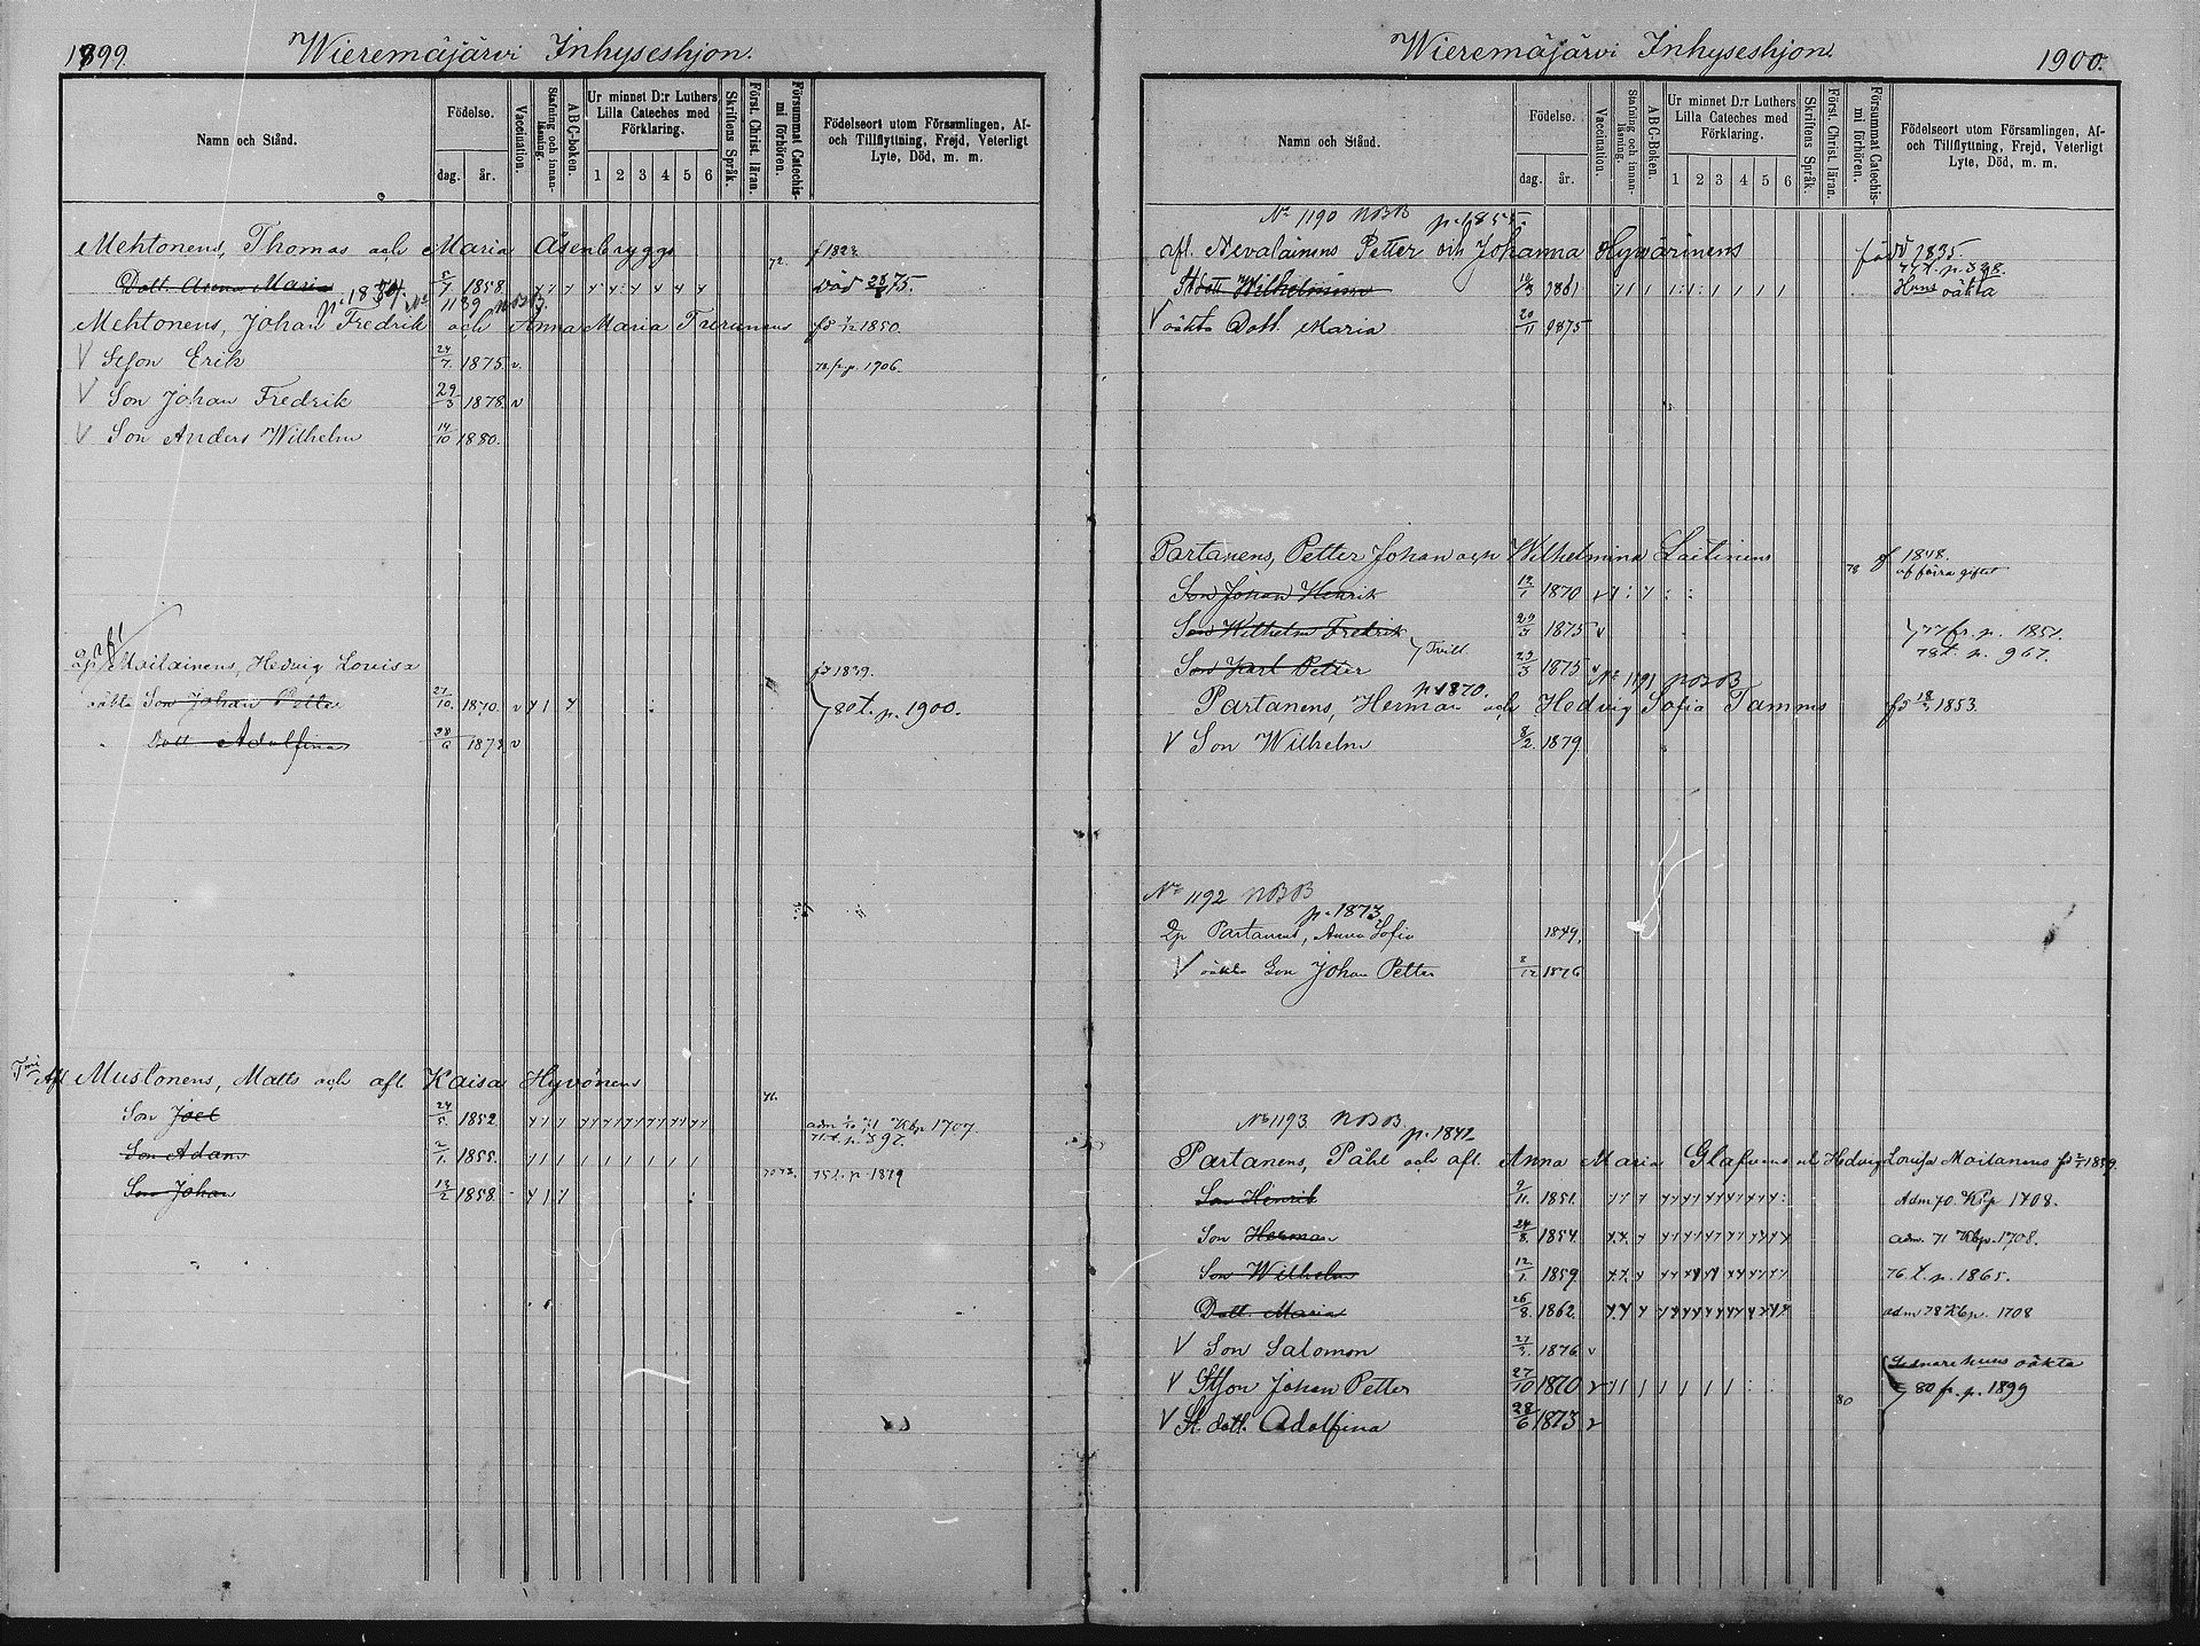 1899.
Wieremäjärvi Inhyseshjon.
Namn och Stånd.
Födelse.
dag. år.
Vaccination.
Stafning och innanläsning.
ABC-boken.
Ur minnet D:r Luthers Lilla Cateches med Förklaring.
1 2 3 4 5 6
Skriftens Språk.
Först. Christ. läran.
Försummat Catechismi förhören.
Födelseort utom Församlingen, Af- och Tillflyttning, Frejd, Veterligt Lyte, Död, m. m.
Mehtonens, Thomas och Maria Asenbryggs 72.
Dott. Anna Maria 1858
död 75.
p. 1834. No 1189 NBB.
Mehtonens, Johan Fredrik och Anna Maria fd 1850.
V StSon Erik 24/7. 1875. v. p. 1906.
V Son Johan Fredrik 29/3 1878. v
V Son Anders Wilhelm 14/10 1880.
Qp Moilainens, Hedvig Lovisa fd 1839.
oäkta Son Johan Petter 27/10. 1870. v
80 t. p. 1900.
Dott Adolfina 28/6 1873 v
Afl Mustonens, Matts och afl. Kaisa Hyvönens
Son Joel 24/5. 1852. adm 71 Kbp 1707.
Son Adam 2/1. 1855.
75 t. p 1879
Son Johan 13/2 1858.
Wieremäjärvi Inhyseshjon.
1900.
Namn och Stånd.
Födelse.
dag. år.
Vaccination.
Stafning och innanläsning.
ABC-Boken.
Ur minnet D:r Luthers Lilla Cateches med Förklaring.
1 2 3 4 5 6
Skriftens Språk.
Först. Christ. läran.
Försummat Catechismi förhören.
Födelseort utom Församlingen, Af- och Tillflyttning, Frejd, Veterligt Lyte, Död, m. m.
No 1190 NBB p. 1855.
afl. Nevalainens Petter och Johanna Hyvärinens född 1835.
Stdott Wilhelmina 1861
Hans oäkta
V oäkta Dott. Maria 20/11 1875
Partanens, Petter Johan och Wilhelmina Laitinens 78 f 1848.
af förra giftet
Son Johan Henrik 1870
Son Wilhelm Fredrik 29/3 1875 v
77 fr. p. 1851.
Tvill.
78 t. p. 967.
Son Karl Petter 29/3 1875 v
No 1191 NBB
p. 1870.
Partanens, Herman och Hedvig Sofia Tamms fd 1853.
V Son Wilhelm 8/2. 1879.
No 1192 NBB
p. 1873
Qp Partanens, Anna Sofia 1849.
V oäkta Son Johan Petter 8/12 1876
No 1193 NBB. p. 1841
Partanens, Påhl och afl. Anna Maria
Hedvig Lovisa Moilanens
Son Henrik 9/11. 1851. Adm 70. Kbp 1708.
Son Herman 24/8. 1854. adm. 71 Kbp. 1708.
Son Wilhelm 12/1. 1859. 76. t. p. 1865.
Dott. Maria 26/8. 1862. adm 78 Kbp. 1708
V Son Salomon 1876 v
Sednare hans oäkta
V StSon Johan Petter 27/10 1870 v 80 80 fr. p. 1899
V St. dott. Adolfina 28/6 1873 v